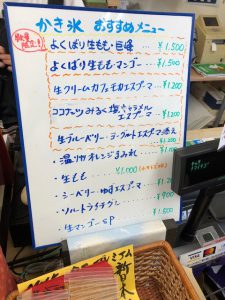 かき氷 おすすめメニュー
数量限定!
よくばり生もも・巨峰 … ¥1,500
よくばり生もも・マンゴー … ¥1,500
生クリームカフェモカエスプーマ … ¥1,200
ココナッツみるく塩キャラメル
エスプーマ … ¥1,200
生ブルーベリーヨーグルトエスプーマ添え
¥1,200
・温州オレンジまみれ … 
・生もも … ¥1,000
・シーベリー
・ソルトライチ … ¥900
・生マンゴーSP … ¥1,500
新米